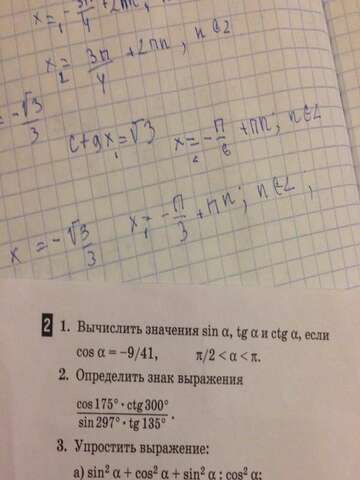 x₁ = -3π/4 + 2πn, n∈Z
x₂ = 3π/4 + 2πn, n∈Z
= -√3/3
ctgx₁ = √3 x₂ = -π/6 + πn; n∈Z
x = -√3/3 x₁ = -π/3 + πn; n∈Z;
2 1. Вычислить значения sin α, tg α и ctg α, если
cos α = –9/41, π/2 < α < π.
2. Определить знак выражения
cos 175° · ctg 300°
sin 297° · tg 135° .
3. Упростить выражение:
а) sin² α + cos² α + sin² α : cos² α;